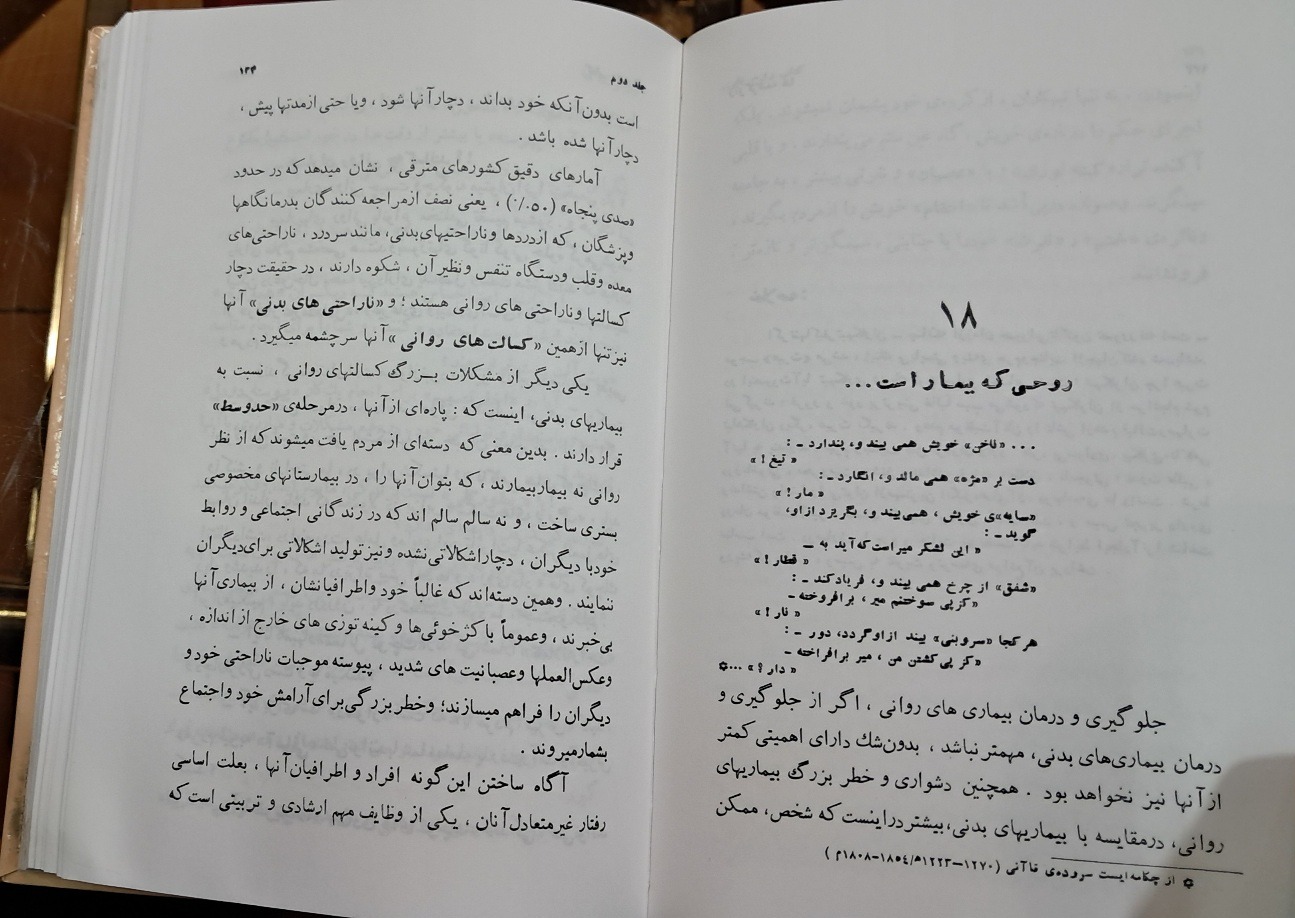 ۱۸
روحی که بیمار است...
... «ناخن» خویش همی بیند و، پندارد ـ :
« تیغ ! »
دست بر «مژه» همی مالد و، انگارد ـ :
« مار ! »
«سایه»ی خویش ، همی‌بیند و، بگریزد ازاو،
گوید ـ :
« این لشکر میر است که‌آید به ــ
« قطار ! »
«شفق» از چرخ همی بیند و، فریادکند ـ :
«کزپی سوختنم میر ، برافروخته ـ
« نار ! »
هرکجا «سروبنی» بیند ازاوگردد، دور ـ :
«کز پی‌کشتن من ، میر برافراخته ـ
« دار ؟» ...✡
جلوگیری و درمان بیماری های روانی ، اگر از جلوگیری و
درمان بیماری‌های بدنی، مهمتر نباشد ، بدون‌شك دارای اهمیتی کمتر
ازآنها نیز نخواهد بود . همچنین دشواری و خطر بزرگ بیماریهای
روانی، درمقایسه با بیماریهای بدنی،بیشتردراینست که شخص، ممکن
✡ از چکامه‌ایست سروده‌ی قاآنی (۱۲۷۰–۱۲۲۳ه/۱۸۵٤–۱۸۰۸م )
جلد دوم
۱۲۳
است بدون‌آنکه خود بداند ، دچارآنها شود ، ویا حتی ازمدتها پیش ،
دچارآنها شده باشد .
آمارهای دقیق کشورهای مترقی ، نشان میدهدکه در حدود
«صدی پنجاه» (۵۰٪) ، یعنی نصف ازمراجعه کنندگان بدرمانگاهها
وپزشگان ، که ازدردها وناراحتیهای‌بدنی، مانند سردرد ، ناراحتی‌های
معده وقلب ودستگاه تنفس ونظیرآن ، شکوه دارند ، در حقیقت دچار
کسالتها وناراحتی های روانی هستند ؛ و «ناراحتی های بدنی» آنها
نیزتنها ازهمین «کسالت های روانی »آنها سرچشمه میگیرد .
یکی دیگر از مشکلات بــزرگ کسالتهای روانی ، نسبت به
بیماریهای بدنی، اینست که : پاره‌ای ازآنها ، درمرحله‌ی «حدوسط»
قرار دارند . بدین معنی که دسته‌ای از مردم یافت میشوندکه از نظر
روانی نه بیماربیمارند ، که بتوان‌آنها را ، در بیمارستانهای مخصوصی
بستری ساخت ، و نه سالم سالم اندکه در زندگانی اجتماعی و روابط
خودبا دیگران ، دچاراشکالاتی‌نشده ونیزتولید اشکالاتی برای‌دیگران
ننمایند . وهمین دسته‌اندکه غالباً خود واطرافیانشان ، از بیماری‌آنها
بی‌خبرند ، وعموماً باکژخوئی‌ها و کینه توزی های خارج از اندازه ،
وعکس‌العملها وعصبانیت های شدید ، پیوسته موجبات ناراحتی خود و
دیگران را فراهم میسازند؛ وخطربزرگی‌برای‌آرامش خود واجتماع
بشمارمیروند .
آگاه ساختن این‌گونه افراد و اطرافیان‌آنها ، بعلت اساسی
رفتار غیرمتعادل‌آنان ، یکی از وظایف مهم ارشادی و تربیتی است‌که